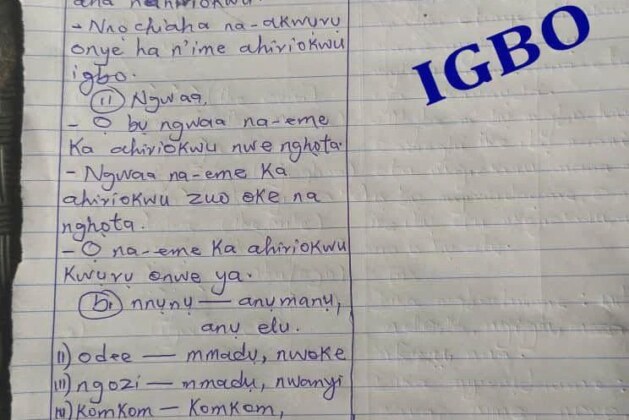 - Nnọchiaha na-akwụrụ
onye ha n'ime ahiriokwu
igbo.
(ii) Ngwaa.
- Ọ bụ ngwaa na-eme
Ka ahiriokwu nwe nghọta.
- Ngwaa na-eme Ka
ahiriokwu zuo oke na
nghọta.
- Ọ na-eme Ka ahiriokwu
Kwụrụ onwe ya.
(b) nnụnụ — anụmanụ,
anụ elu.
ii) odee — mmadụ, nwoke
iii) ngozi — mmadụ, nwanyi
iv) Komkom — Komkom,
IGBO